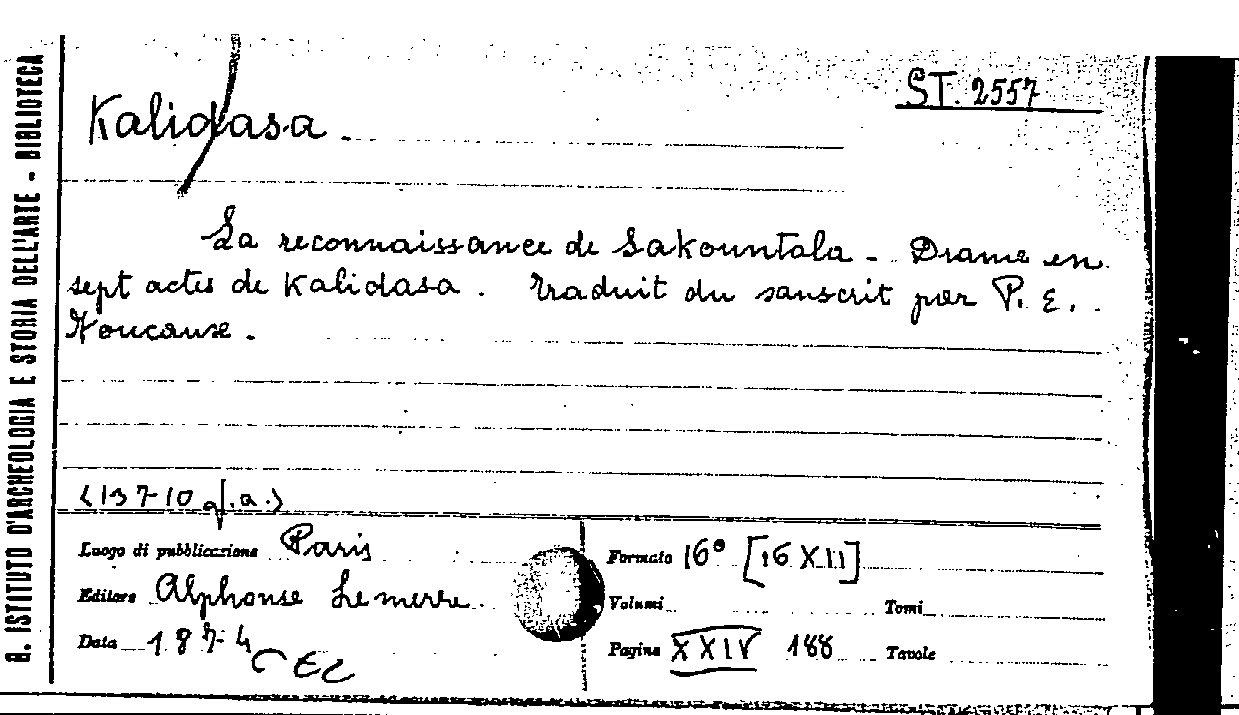 R. ISTITUTO D'ARCHEOLOGIA E STORIA DELL'ARTE - BIBLIOTECA
ST. 2557
Kalidasa.
La reconnaissance de Sakountala - Drame en
sept actes de Kalidasa. Traduit du sanscrit par P. E.
Foucaux.
(13710 f.a.)
Luogo di pubblicazione Paris
Editore Alphonse Lemerre.
Data 1874
Formato 16° [16 XII]
Volumi Tomi
Pagine XXIV 188 Tavole